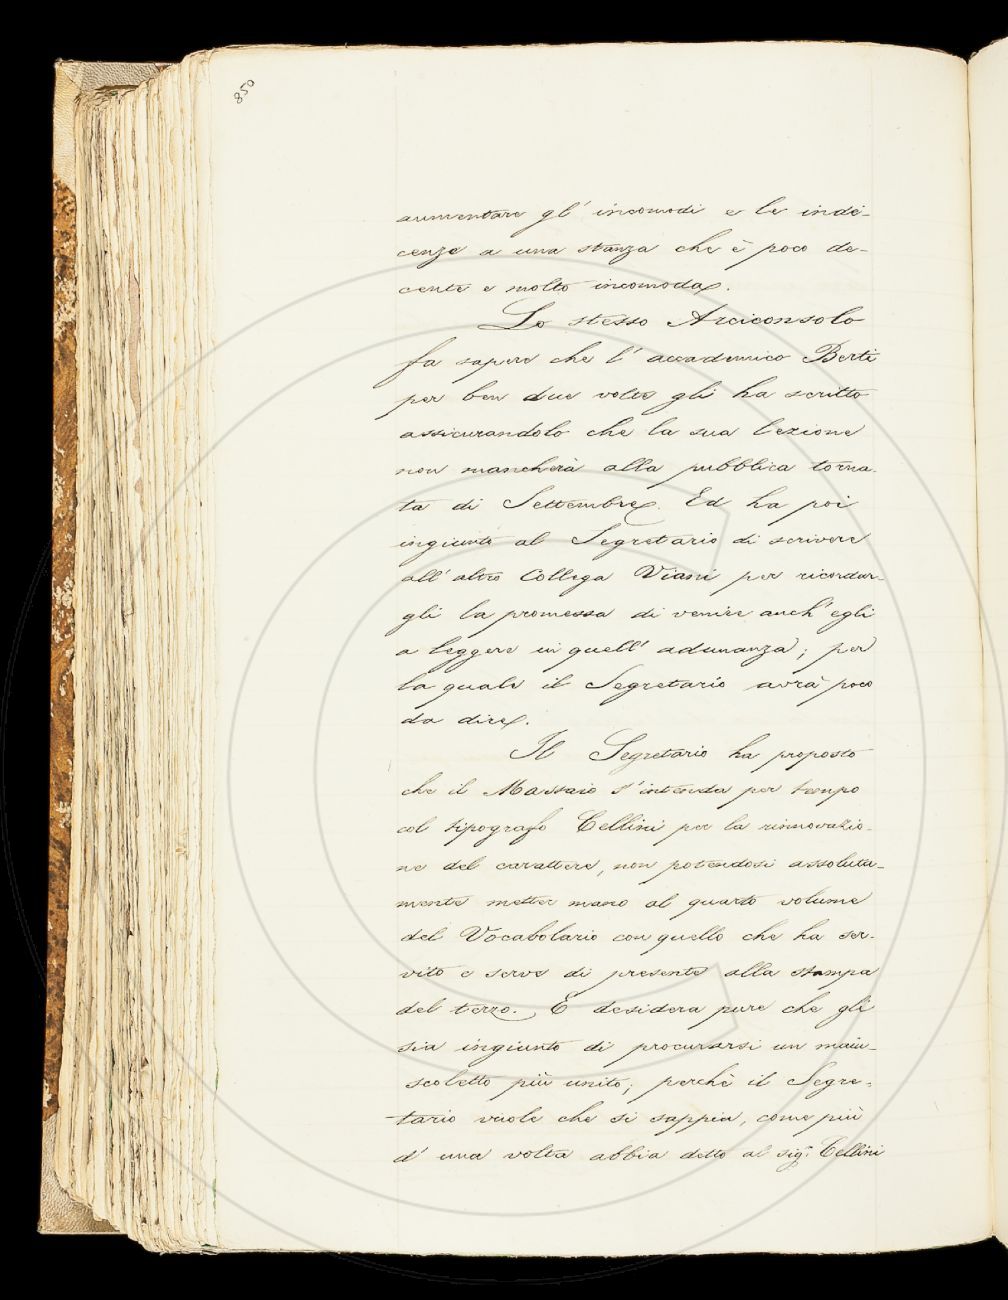 850
aumentare gl' incomodi e le inde-
cenze a una stanza che è poco de-
cente e molto incomoda.
Lo stesso Arciconsolo
fa sapere che l' accademico Berti
per ben due volte gli ha scritto
assicurandolo che la sua lezione
non mancherà alla pubblica torna-
ta di Settembre. Ed ha poi
ingiunto al Segretario di scrivere
all' altro Collega Viani per ricordar-
gli la promessa di venire anch' egli
a leggere in quell' adunanza; per
la quale il Segretario avrà poco
da dire.
Il Segretario ha proposto
che il Massaio s' intenda per tempo
col tipografo Cellini per la rinnovazio-
ne del carattere, non potendosi assoluta-
mente metter mano al quarto volume
del Vocabolario con quello che ha ser-
vito e serve di presente alla stampa
del terzo. E desidera pure che gli
sia ingiunto di procurarsi un maiu-
scoletto più unito; perchè il Segre-
tario vuole che si sappia, come più
d' una volta abbia detto al sig. Cellini